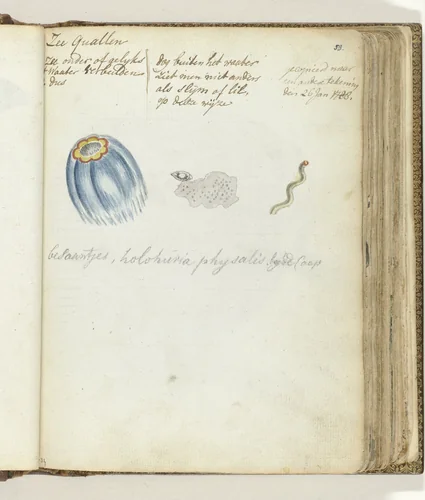 Zee Quallen
Zee onder of gelyks
waater verbeelden
dus
Dog buiten het waater
ziet men niet anders
als slym of lil,
op deeze wyze
53
gecopieerd naar
tekening
den 26 Jan
besaantjes, holothuria physalis by de Caap